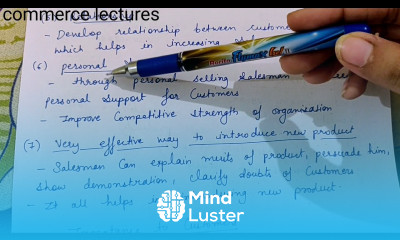 commerce lectures
- Develop relationship between
which helps in increasing
(6) personal
- through personal selling Salesman
personal support for Customers
- Improve Competitive Strength of organisation
(7) Very effective way to introduce new product
- Salesman Can explain merits of product, persuade him,
show demonstration, clarify doubts of Customers
- It all helps in new product.
Mind
Luster